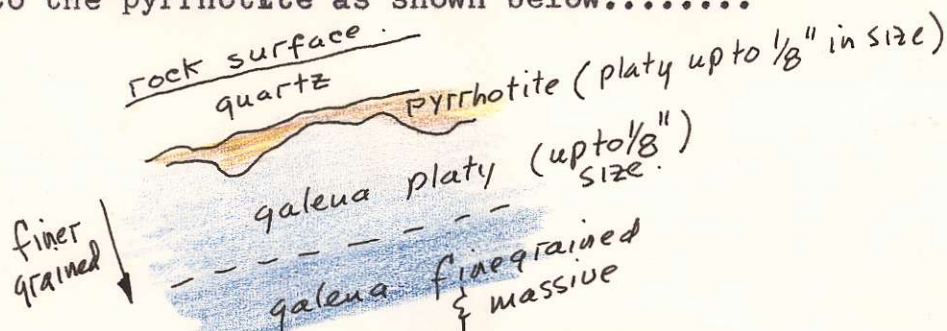 to the pyrrhotite as shown below........
rock surface.
quartz
pyrrhotite (platy up to 1/8" in size)
galena platy (up to 1/8")
size.
finer
grained
galena finegrained
& massive